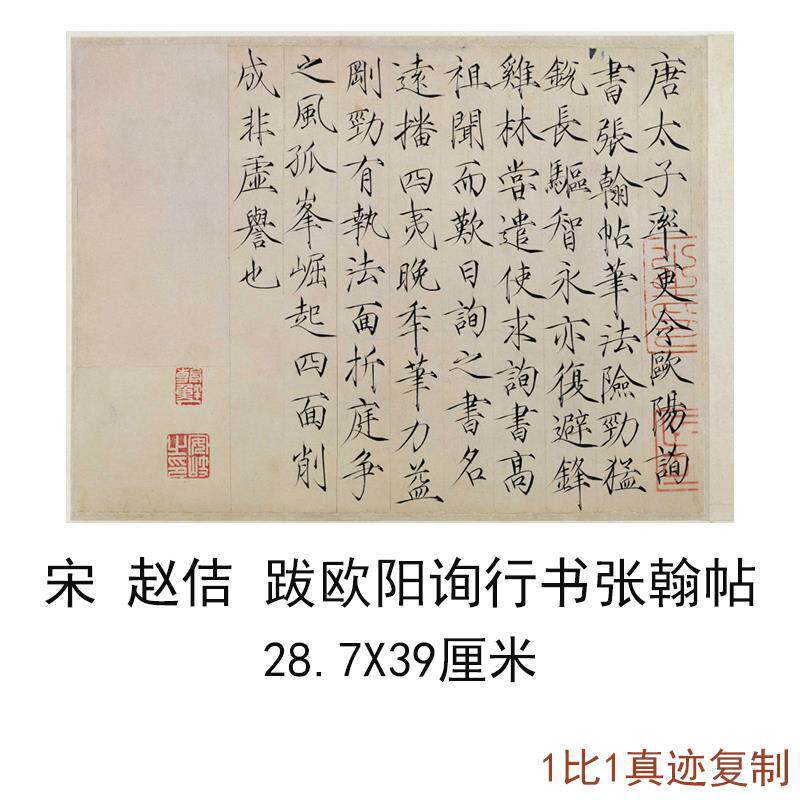 唐太子率更令歐陽詢
書張翰帖筆法險勁猛
銳長驅智永亦復避鋒
雞林嘗遣使求詢書高
祖聞而歎曰詢之書名
遠播四夷晚年筆力益
剛勁有執法面折庭爭
之風孤峯崛起四面削
成非虛譽也
宋 赵佶 跋欧阳询行书张翰帖
28.7X39厘米
1比1真迹复制